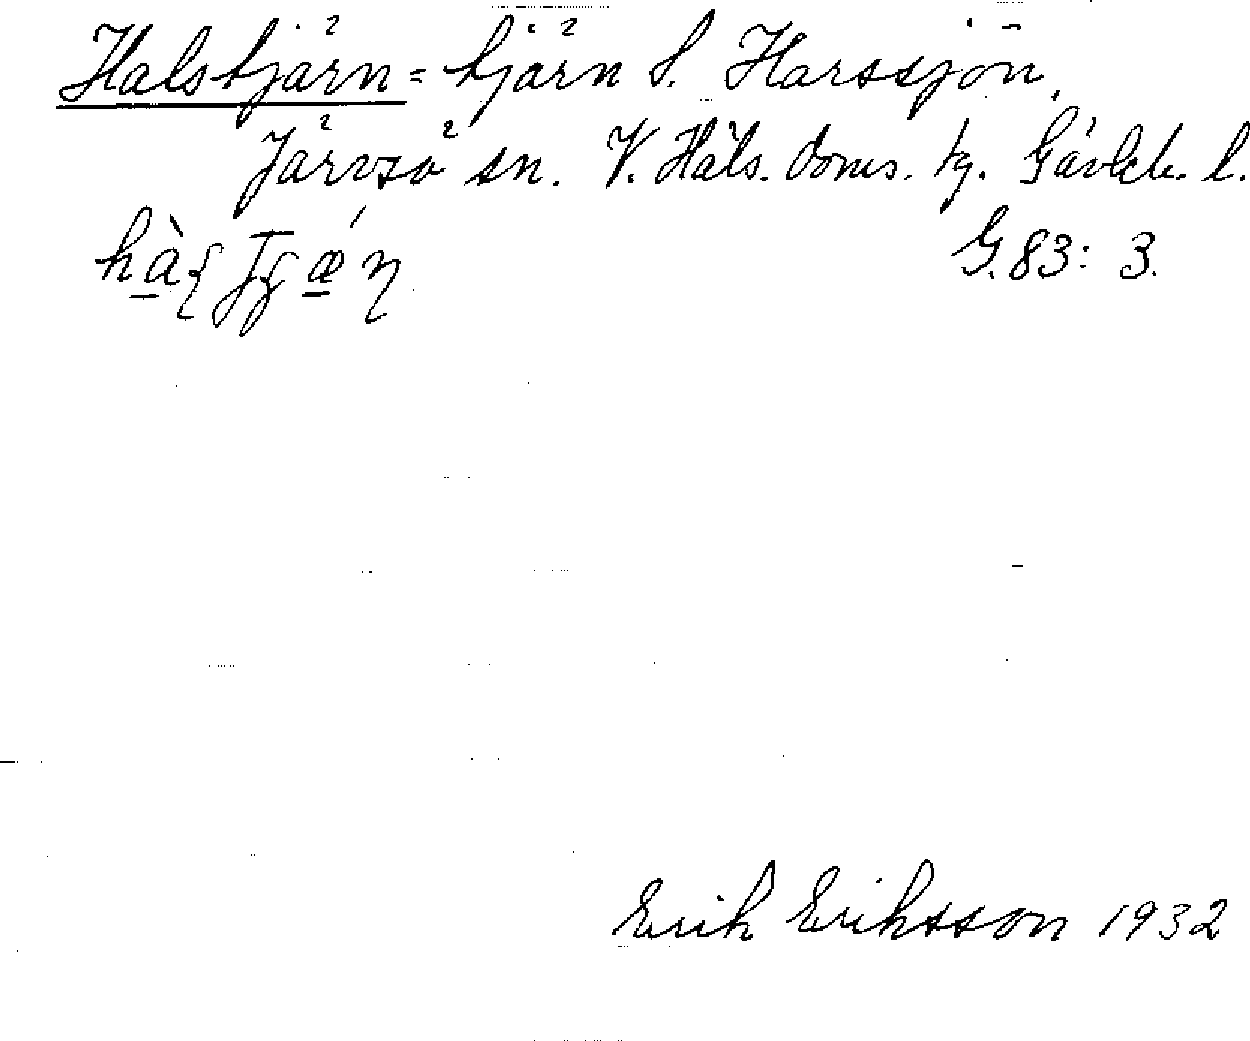 Halstjärn = tjärn S. Harssjön,
Järvsö sn. V. Häls. doms. tg. Gävleb. l.
G. 83: 3.
Erik Eriksson 1932